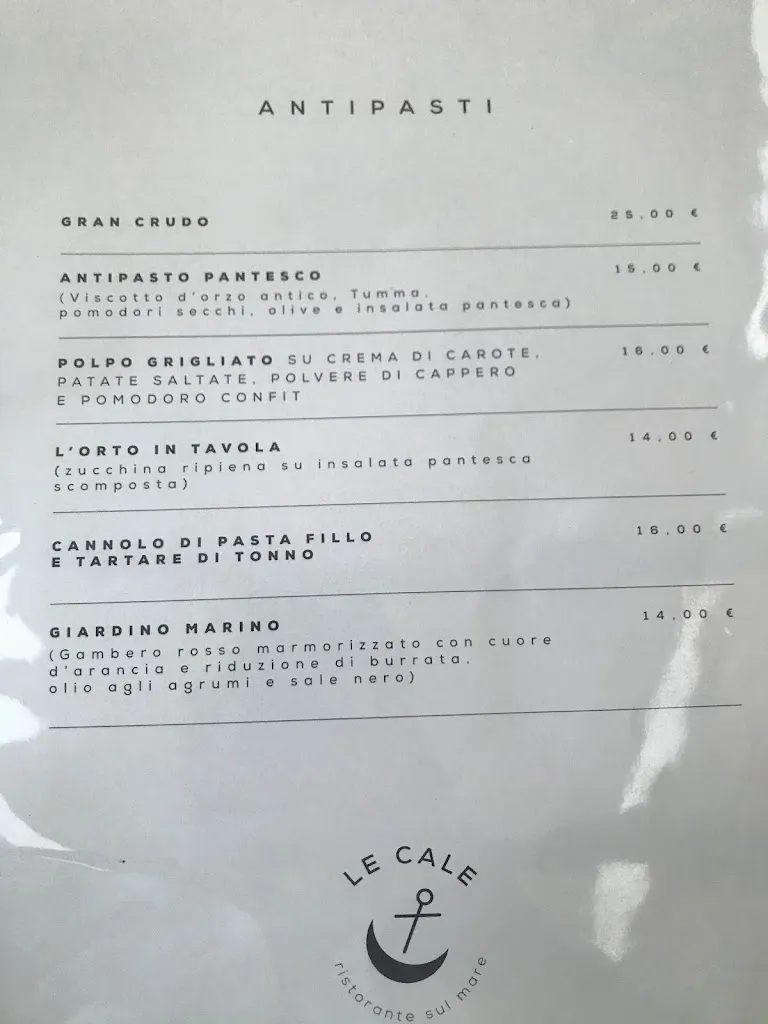 ANTIPASTI
GRAN CRUDO 25,00 €
ANTIPASTO PANTESCO 15,00 €
(Viscotto d'orzo antico, Tumma,
pomodori secchi, olive e insalata pantesca)
POLPO GRIGLIATO SU CREMA DI CAROTE, 16,00 €
PATATE SALTATE, POLVERE DI CAPPERO
E POMODORO CONFIT
L'ORTO IN TAVOLA 14,00 €
(zucchina ripiena su insalata pantesca
scomposta)
CANNOLO DI PASTA FILLO 16,00 €
E TARTARE DI TONNO
GIARDINO MARINO 14,00 €
(Gambero rosso marmorizzato con cuore
d'arancia e riduzione di burrata,
olio agli agrumi e sale nero)
LE CALE
ristorante sul mare